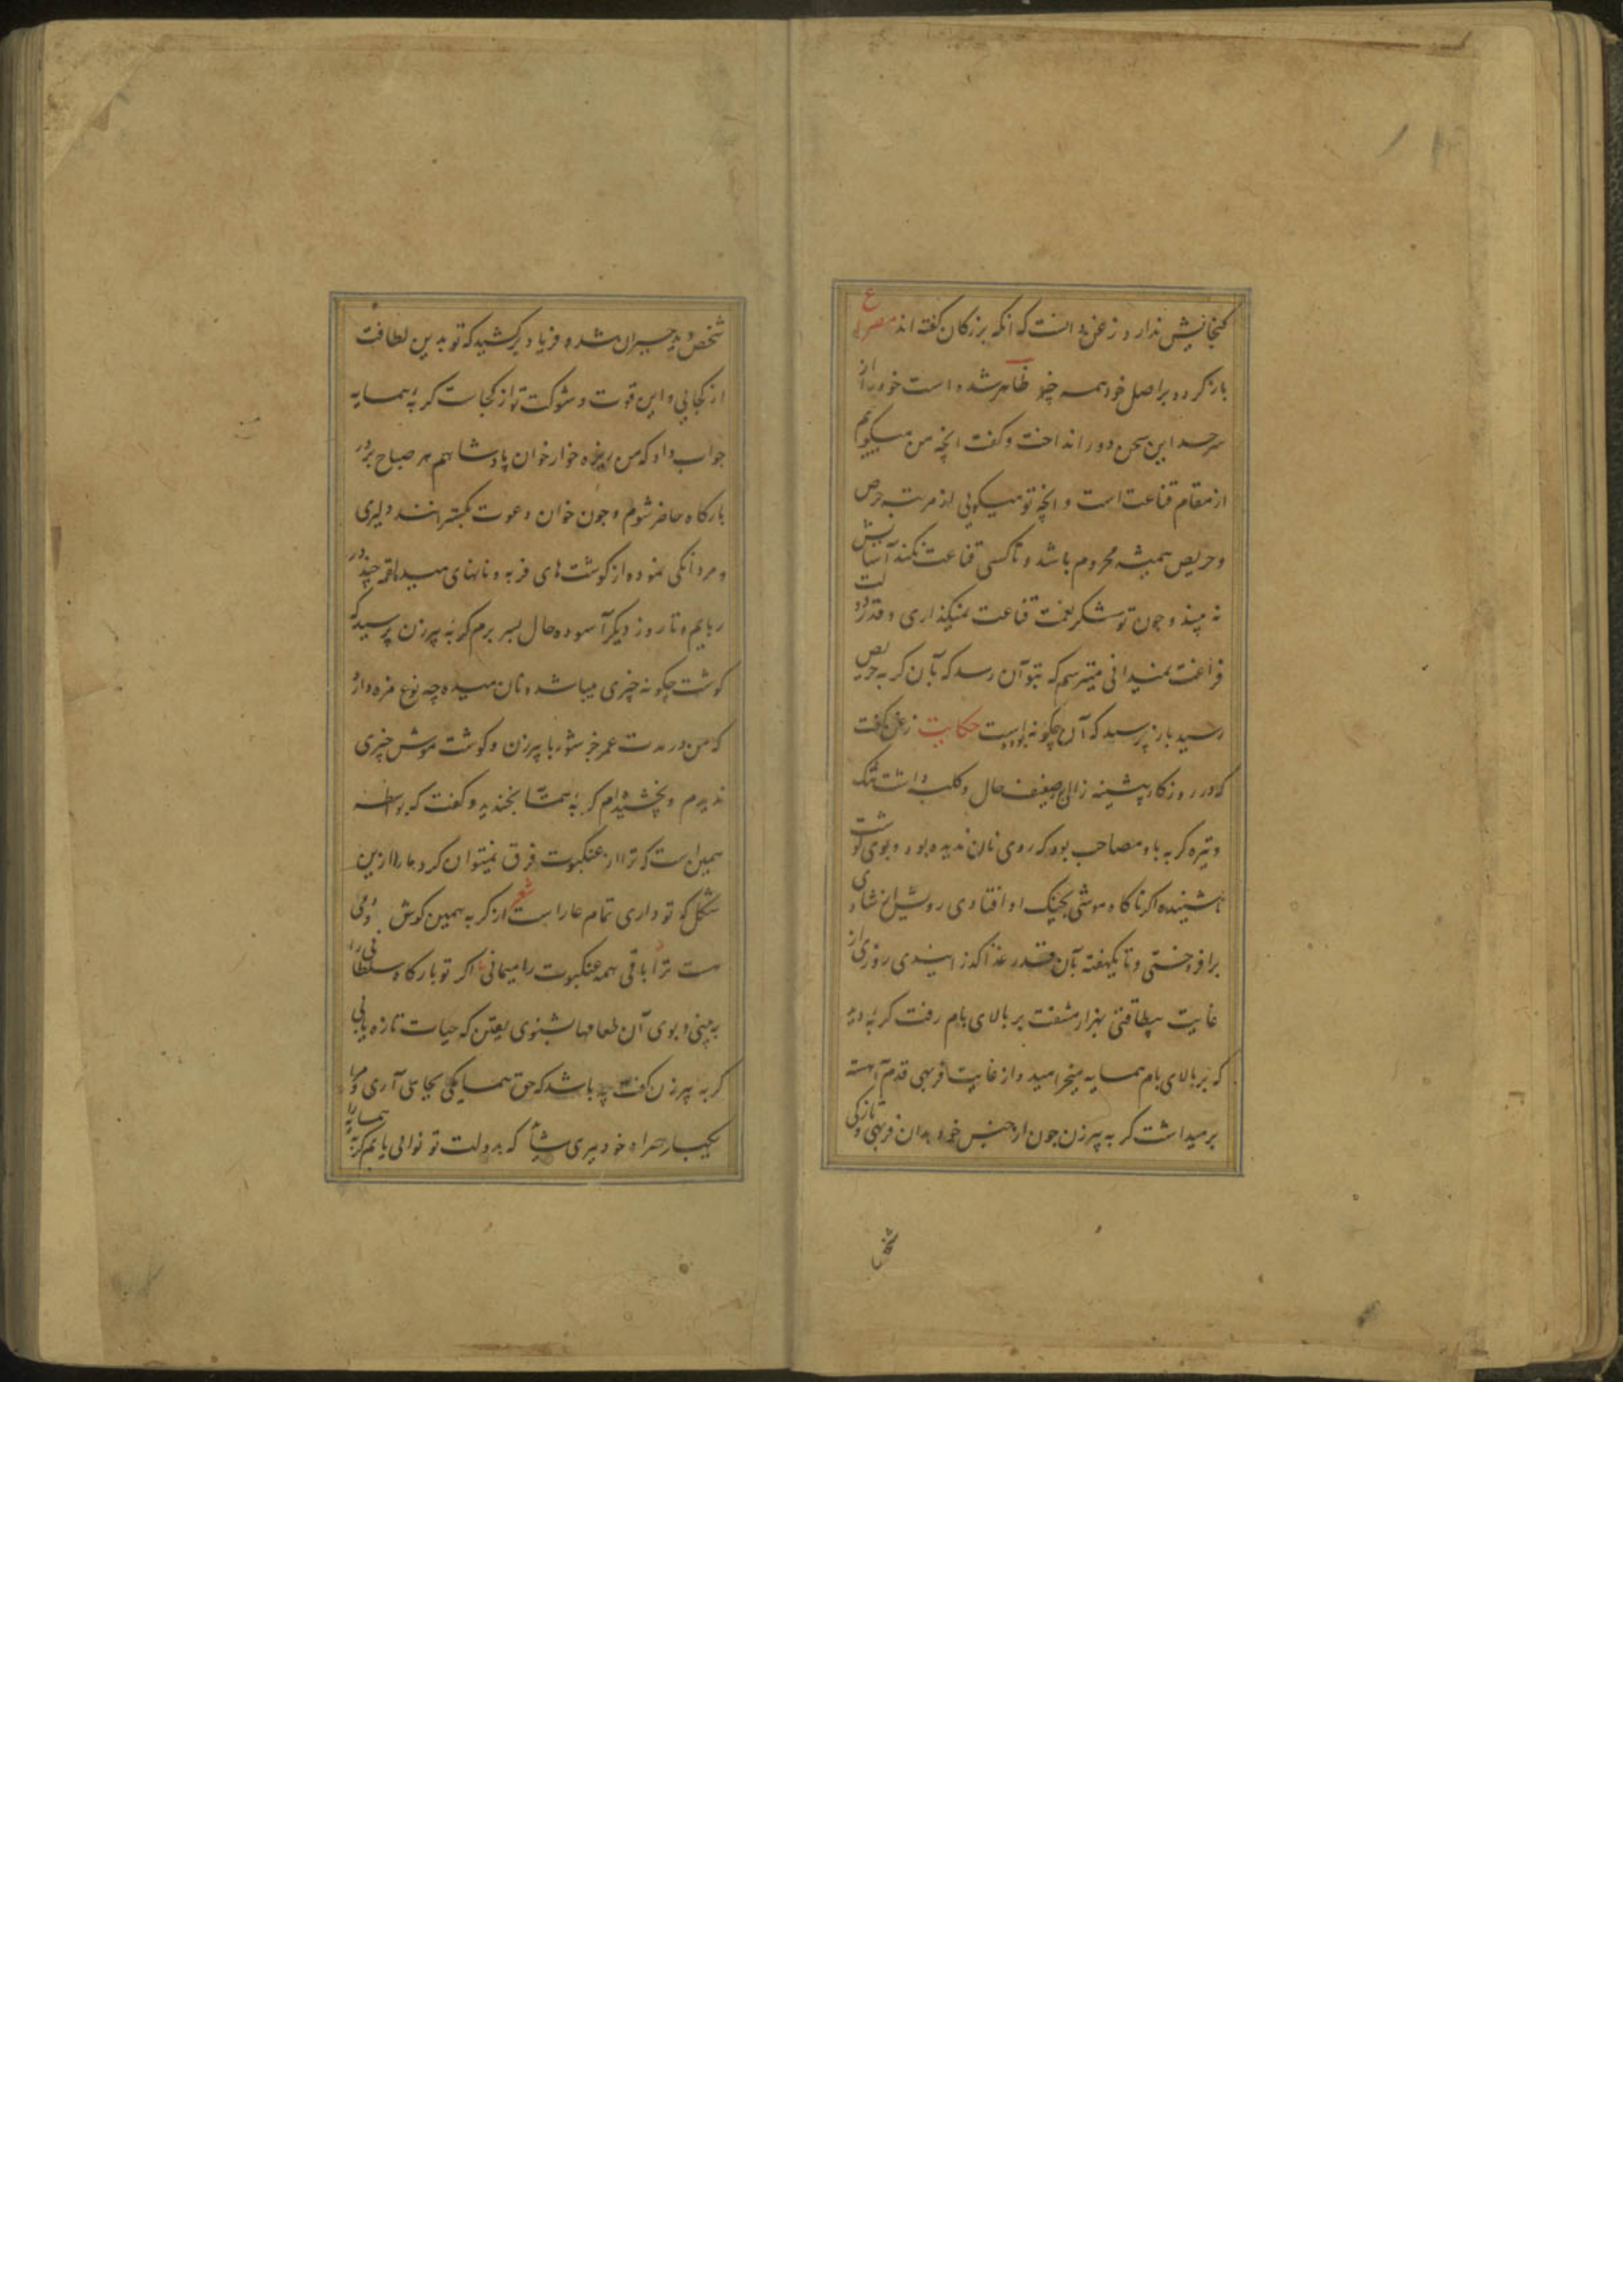 کنجایش ندارد زغن دانست که آنکه بزرکان کفته اند مصرع
باز کردد براصل خود همه چیز ظاهر شده است خود را از
سرحد این سخن دور انداخت و کفت انچه من میکویم
از مقام قناعت است و انچه تو میکویی از مرتبه حرص
و حریص همیشه محروم باشد و تا کسی قناعت نکند آسایش
نه بیند و چون تو شکر نعمت قناعت نمیکذاری و قدر دولت
فراغت نمیدانی میترسم که بتو آن رسد که بآن کربه حریص
رسید باز پرسید که آن چکونه بوده است حکایت زغن کفت
که در روزکار پیشینه زالی ضعیف حال و کلبه داشت تنک
و تیره کربه با او مصاحب بود که روی نان ندیده بود و بوی کوشت
ناشنیده اکر ناکاه موشی بچنک او افتادی روشن از شادی
برافروختی و تا یکهفته بآن قدر غذا کذرانیدی روزی از
غایت بیطاقتی بهزار مشقت بر بالای بام رفت کربه دید
که بر بالای بام همسایه میخرامید و از غایت فربهی قدم آهسته
برمیداشت کربه پیرزن چون از جنس خود بدان فربهی و تازکی
شخص
شخص دید حیران شد و فریاد برکشید که تو بدین لطافت
از کجایی و این قوت و شوکت تو از کجاست کربه همسایه
جواب داد که من ریزه خوار خوان پادشاهم هر صباح بر در
بارکاه حاضر شوم و چون خوان دعوت بکسترانند دلیری
و مردانکی نموده از کوشت های فربه و نانهای میده لقمه چند در
ربایم و تا روز دیکر آسوده حال بسر برم کربه پیرزن پرسید که
کوشت چکونه چیزی میباشد و نان میده چه نوع مزه دارد
که من در مدت عمر جز شوربا پیرزن و کوشت موش چیزی
ندیدم و نچشیدم کربه همسایه بخندید و کفت که بواسطه
همین است که ترا از عنکبوت فرق نمیتوان کرد و ما را ازین
شکل که تو داری تمام عار است شعر از کربه همین کوش و دمی
هست ترا باقی همه عنکبوت را میمانی اکر تو بارکاه سلطانی را
ببینی و بوی آن طعامها شنوی یقین که حیات تازه یابی
کربه پیرزن کفت چه باشد که حق همسایکی بجای آری و مرا
یکبار همراه خود ببری شاید که بدولت تو نوالی یابم کربه همسایه را